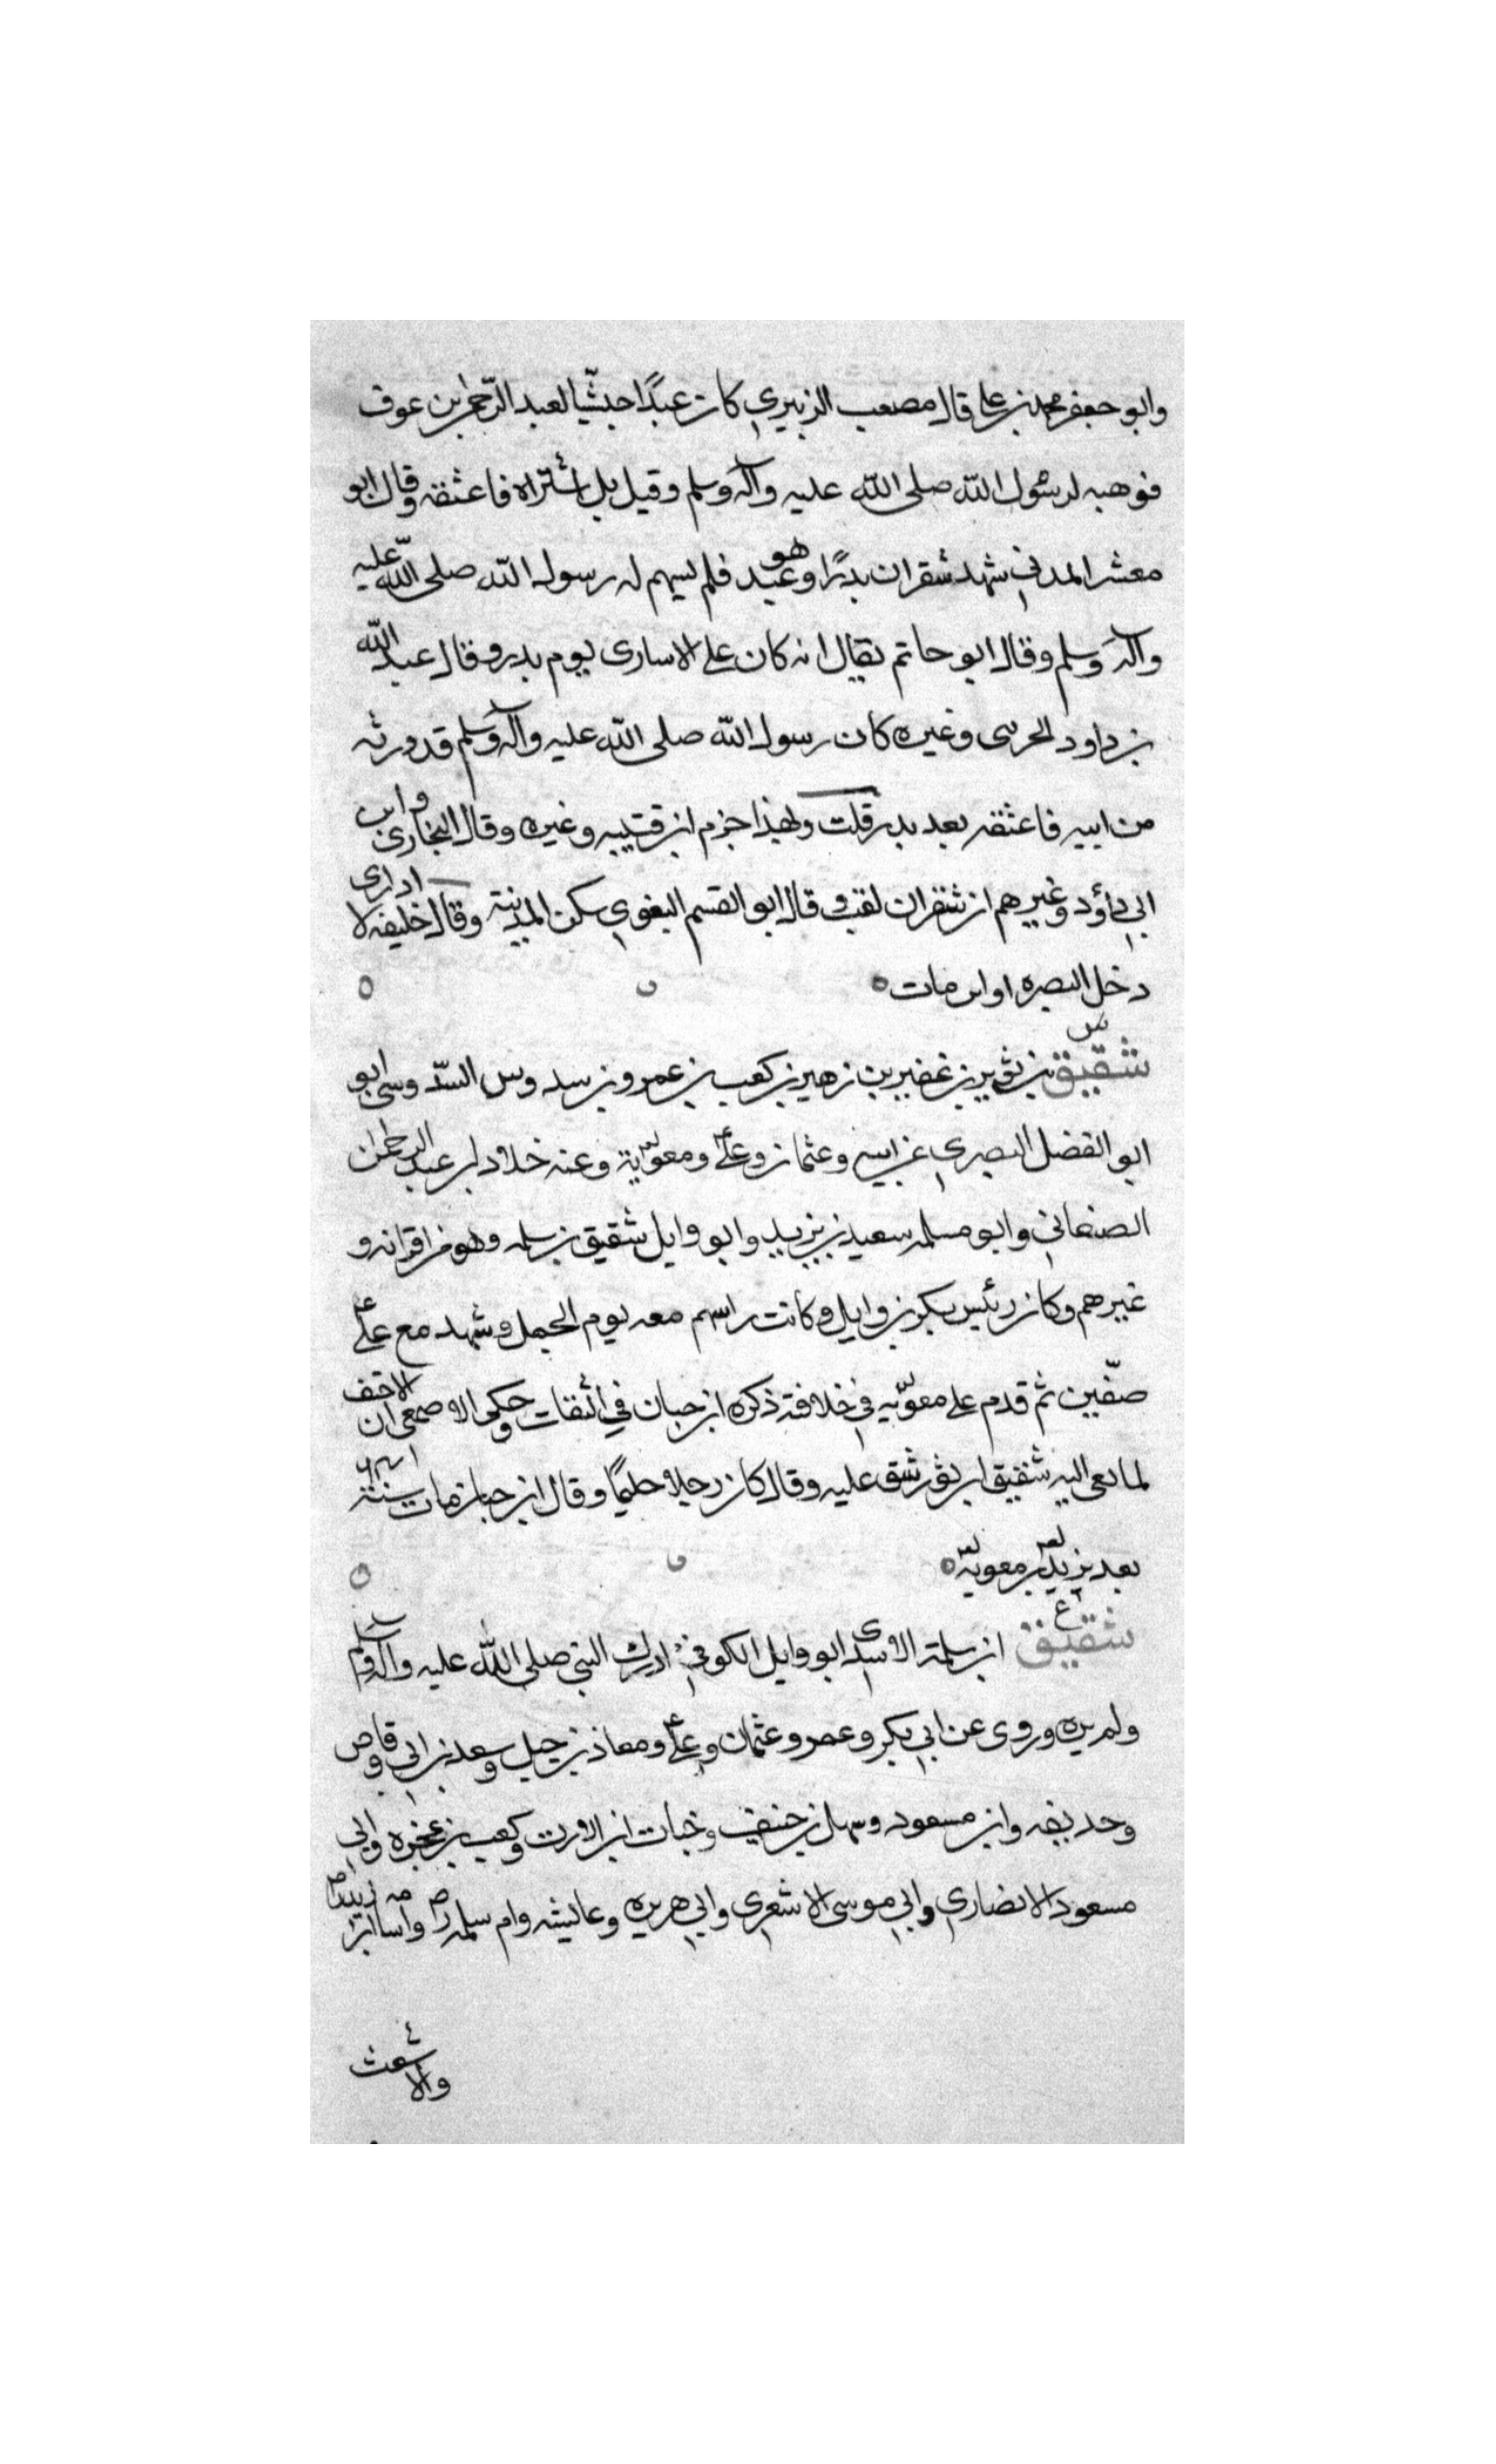 وابو جعفر محمد بن علي قال مصعب الزبيري كان عبدًا حبشيّا لعبد الرّحمٰن بن عوف
فوهبه لرسول الله صلى الله عليه وآله وسلم وقيل بل اشتراه فاعتقه وقال ابو
معشر المدني شهد شقران بدرًا وهو عبد فلم يسهم له رسول الله صلى الله عليه
وآله وسلم وقال ابو حاتم يقال انه كان على الاسارى يوم بدر وقال عبد الله
بن داود الخريبي وغيره كان رسول الله صلى الله عليه وآله وسلم قد ورثه
من ابيه فاعتقه بعد بدر قلت ولهذا جزم ابن قتيبه وغيره وقال البخارى وابن
ابي داؤد وغيرهم ان شقران لقب وقال ابو القسم البغوي سكن المدينة وقال خليفه لا ادارى
دخل البصره او اين مات ه
س
شقيق بن ثور بن عفير بن زهير بن كعب بن عمرو بن سدوس السدوسى ابو
ابو الفضل البصري عن ابيه وعثمان وعلي ومعوية وعنه خلاد بن عبد الرحمٰن
الصنعاني وابو مسلمه سعيد بن يزيد وابو وايل شقيق بن سلمه وهو من اقرانه و
غيرهم وكان رئيس بكر بن وايل وكانت رايتهم معه يوم الجمل وشهد مع علي
صفّين ثم قدم على معويه في خلافته ذكره ابن حبان في الثقات وحكى الاصمعى ان الاحنف
لما نعى اليه شقيق بن ثور شق عليه وقال كان رجلا حليمًا وقال ابن حبان مات سنة
بعد يزيد بن معويه ه
ع
شقيق ابن سلمة الاسدى ابو وايل الكوفي ادرك النبي صلى الله عليه وآله وسلم
ولم يره وروى عن ابي بكر وعمر وعثمان وعلي ومعاذ بن جبل وسعد بن ابي وقاص
وحديفه وابن مسعود وسهل بن حنيف وخباب ابن الارت وكعب بن عجره وابي
مسعود الانصاري وابي موسى الاشعري وابي هريره وعايشه وام سلمه واسامه ابن زيد
والاشعث